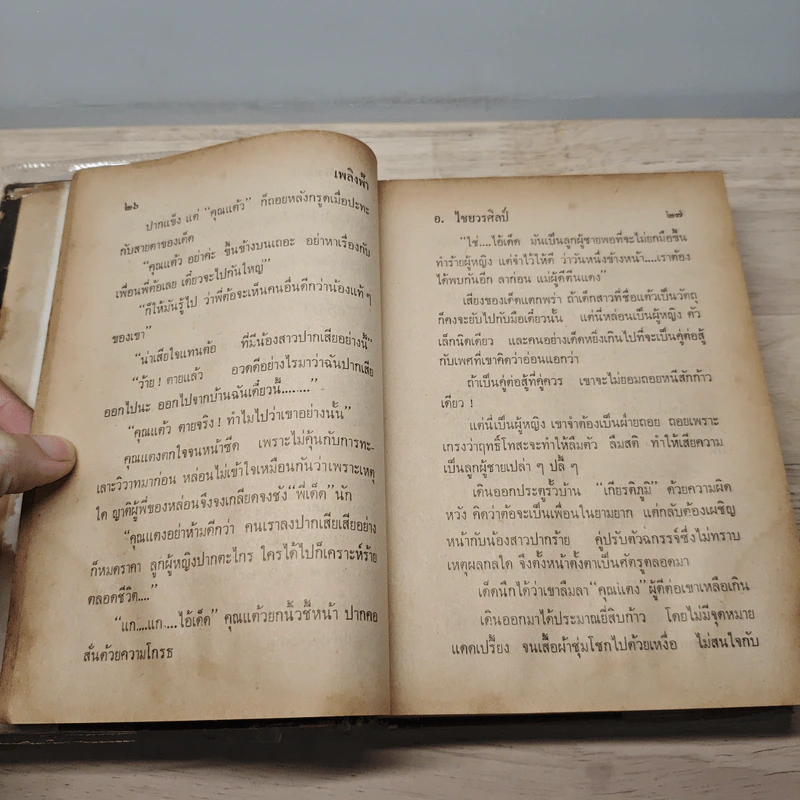 ๒๖
เพลิงฟ้า
ปากแข็ง แต่ “คุณแต้ว” ก็ถอยหลังกรูดเมื่อปะทะ
กับสายตาของเด็ด
“คุณแต้ว อย่าค่ะ ขึ้นข้างบนเถอะ อย่าหาเรื่องกับ
เพื่อนพี่ต้อเลย เดี๋ยวจะไปกันใหญ่”
“ก็ให้มันรู้ไป ว่าพี่ต้อจะเห็นคนอื่นดีกว่าน้องแท้ ๆ
ของเขา”
“น่าเสียใจแทนต้อ ที่มีน้องสาวปากเสียอย่างนี้”
“ว้าย ! ตายแล้ว อวดดีอย่างไรมาว่าฉันปากเสีย
ออกไปนะ ออกไปจากบ้านฉันเดี๋ยวนี้.........”
“คุณแต้ว ตายจริง ! ทำไมไปว่าเขาอย่างนั้น”
คุณแตงตกใจจนหน้าซีด เพราะไม่คุ้นกับการทะ-
เลาะวิวาทมาก่อน หล่อนไม่เข้าใจเหมือนกันว่าเพราะเหตุ
ใด ญาติผู้พี่ของหล่อนจึงจงเกลียดจงชัง “พี่เด็ด” นัก
“คุณแตงอย่าห้ามดีกว่า คนเราลงปากเสียเสียอย่าง
ก็หมดราคา ลูกผู้หญิงปากตะไกร ใครได้ไปก็เคราะห์ร้าย
ตลอดชีวิต....”
“แก....แก....ไอ้เด็ด” คุณแต้วยกนิ้วชี้หน้า ปากคอ
สั่นด้วยความโกรธ
อ. ไชยวรศิลป์
๒๗
“ใช่....ไอ้เด็ด มันเป็นลูกผู้ชายพอที่จะไม่ยกมือขึ้น
ทำร้ายผู้หญิง แต่จำไว้ให้ดี ว่าวันหนึ่งข้างหน้า....เราต้อง
ได้พบกันอีก ลาก่อน แม่ผู้ดีตีนแดง”
เสียงของเด็ดแตกพร่า ถ้าเด็กสาวที่ชื่อแต้วเป็นวัตถุ
ก็คงจะยับไปกับมือเดี๋ยวนั้น แต่นี่หล่อนเป็นผู้หญิง ตัว
เล็กนิดเดียว และคนอย่างเด็ดหยิ่งเกินไปที่จะเป็นคู่ต่อสู้
กับเพศที่เขาคิดว่าอ่อนแอกว่า
ถ้าเป็นคู่ต่อสู้ที่คู่ควร เขาจะไม่ยอมถอยหนีสักก้าว
เดียว !
แต่นี่เป็นผู้หญิง เขาจำต้องเป็นฝ่ายถอย ถอยเพราะ
เกรงว่าฤทธิ์โทสะจะทำให้ลืมตัว ลืมสติ ทำให้เสียความ
เป็นลูกผู้ชายเปล่า ๆ ปลี้ ๆ
เดินออกประตูรั้วบ้าน “เกียรติภูมิ” ด้วยความผิด
หวัง คิดว่าต้อจะเป็นเพื่อนในยามยาก แต่กลับต้องเผชิญ
หน้ากับน้องสาวปากร้าย คู่ปรับตัวฉกรรจ์ซึ่งไม่ทราบ
เหตุผลกลใด จึงตั้งหน้าตั้งตาเป็นศัตรูตลอดมา
เด็ดนึกได้ว่าเขาลืมลา “คุณแตง” ผู้ดีต่อเขาเหลือเกิน
เดินออกมาได้ประมาณยี่สิบก้าว โดยไม่มีจุดหมาย
แดดเปรี้ยง จนเสื้อผ้าชุ่มโชกไปด้วยเหงื่อ ไม่สนใจกับ